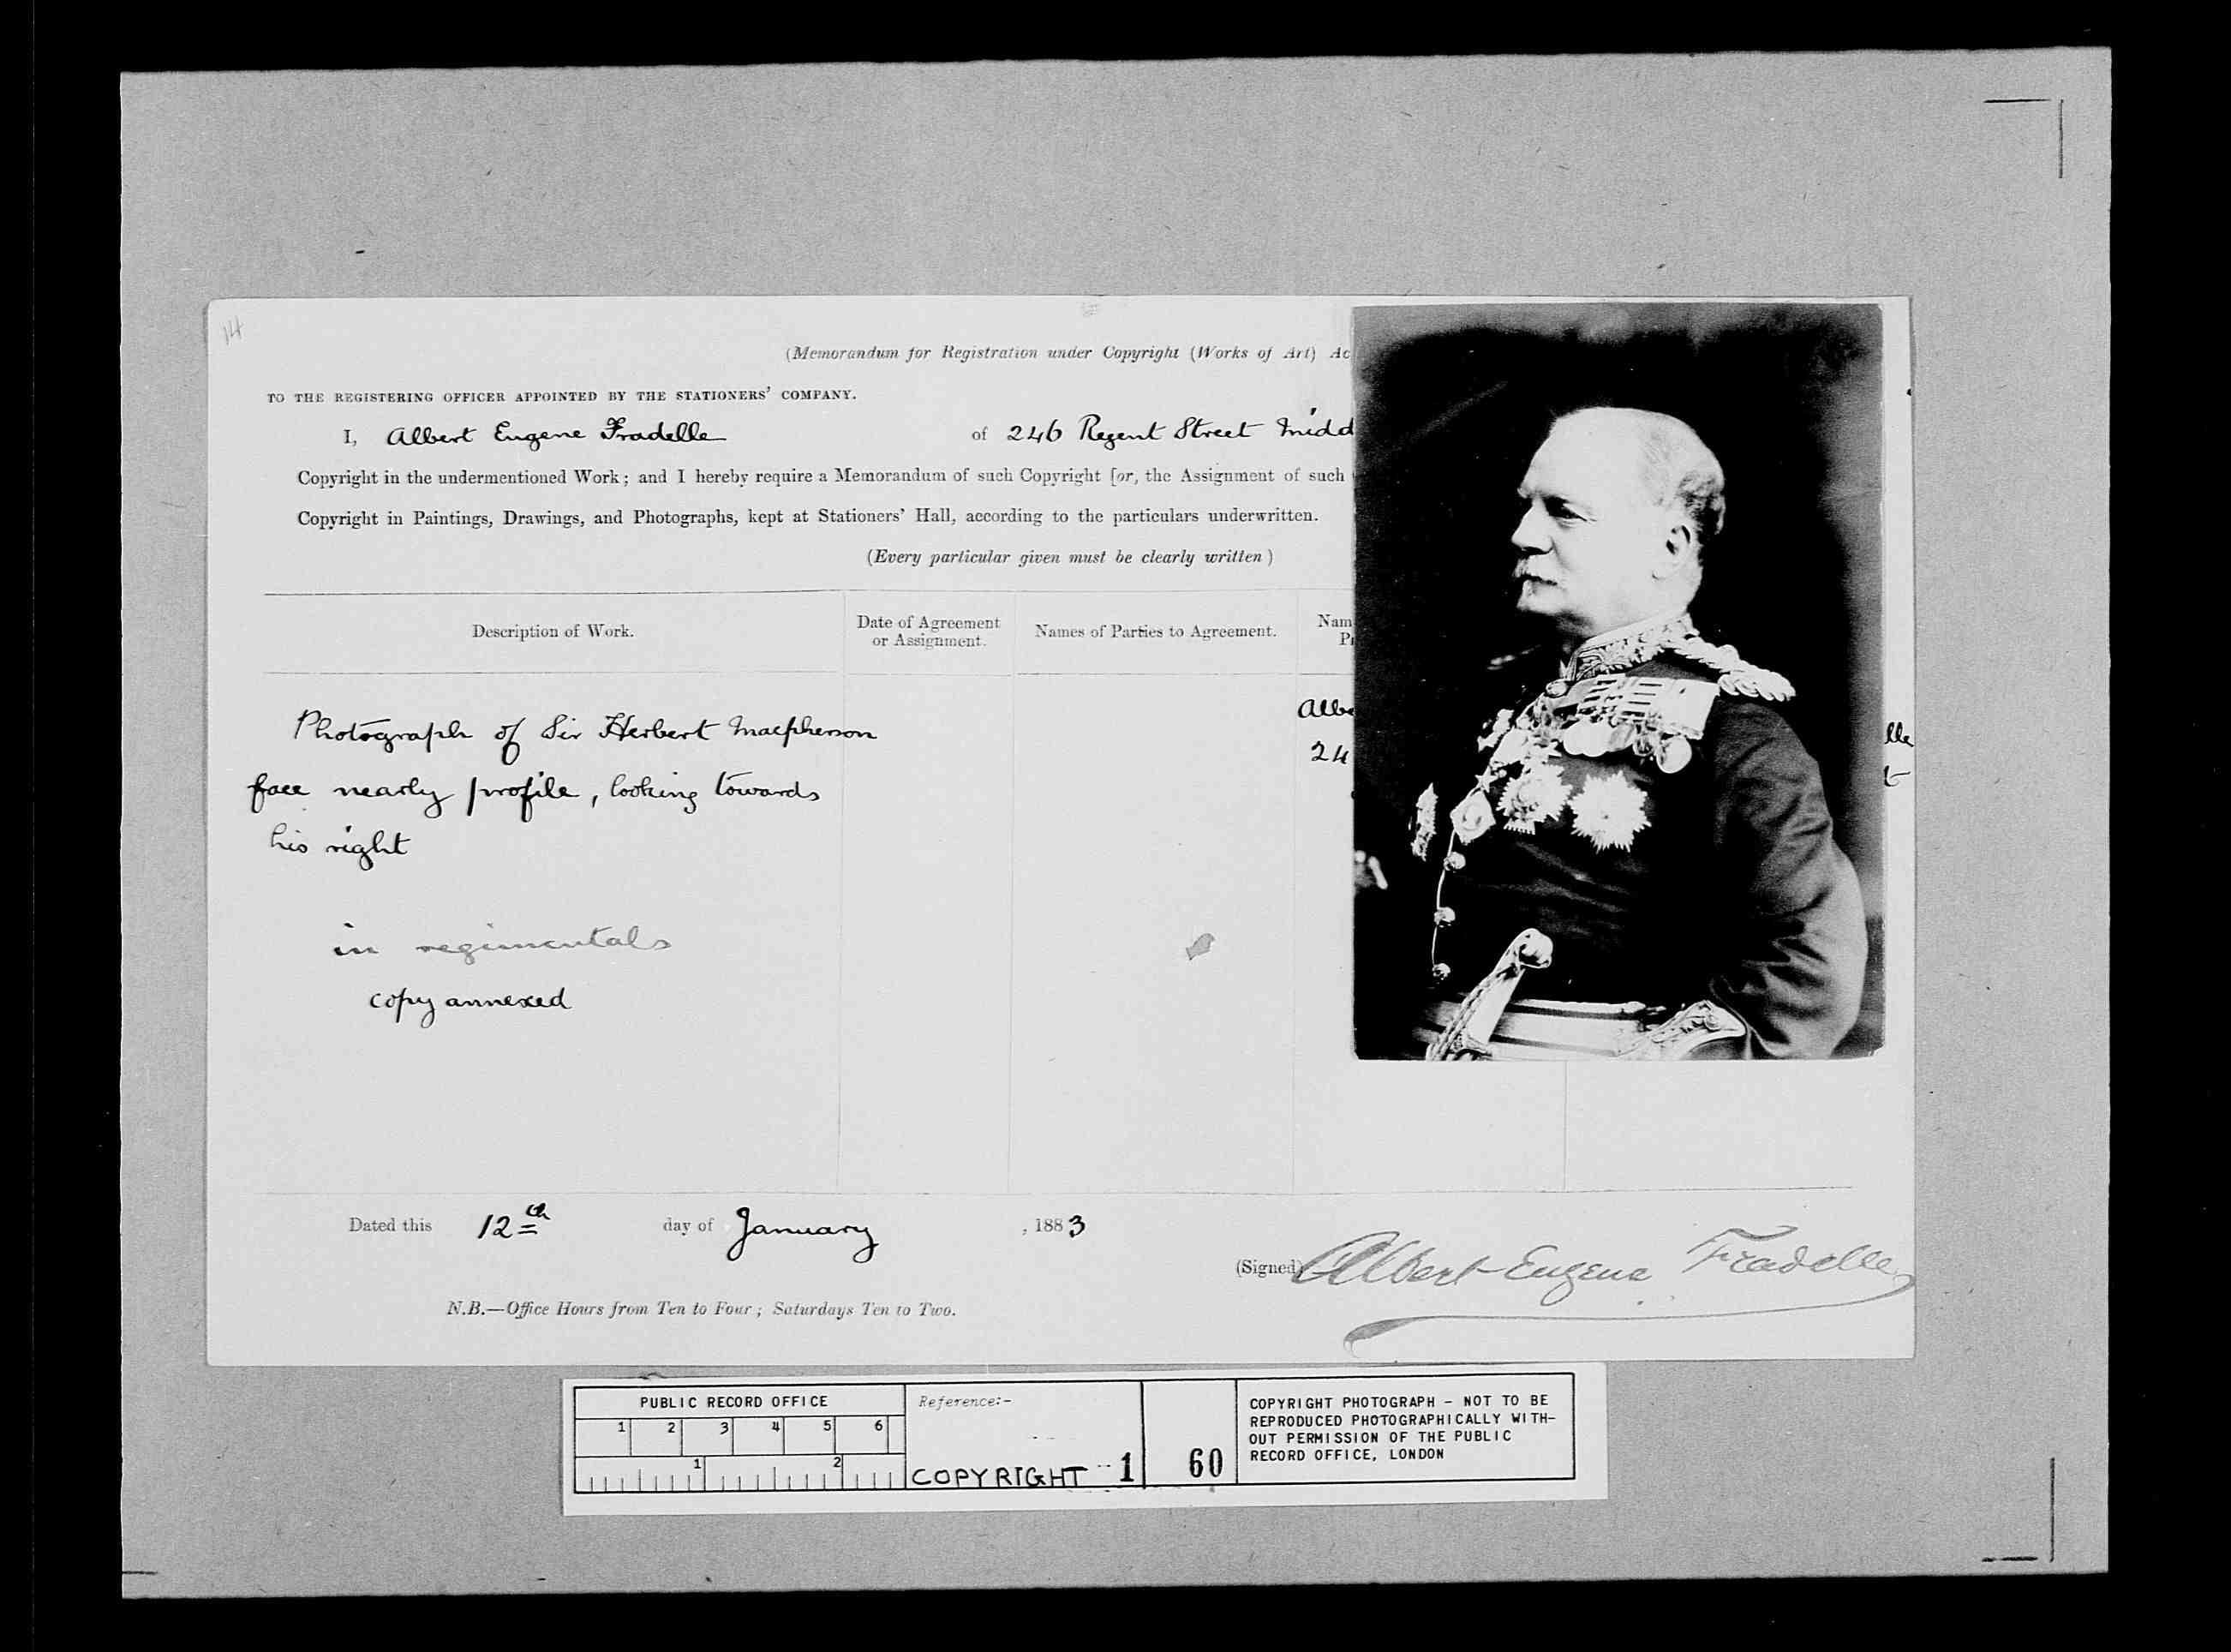 14
(Memorandum for Registration under Copyright (Works of Art) Ac
TO THE REGISTERING OFFICER APPOINTED BY THE STATIONERS' COMPANY.
I, Albert Eugene Fradelle of 246 Regent Street Midd
Copyright in the undermentioned Work; and I hereby require a Memorandum of such Copyright [or, the Assignment of such
Copyright in Paintings, Drawings, and Photographs, kept at Stationers' Hall, according to the particulars underwritten.
(Every particular given must be clearly written)
Description of Work.
Date of Agreement
or Assignment.
Names of Parties to Agreement.
Nam
Pr
Photograph of Sir Herbert Macpherson
face nearly profile, looking towards
his right
in regimentals
copy annexed
Albe
24
lle
t
Dated this 12th day of January, 1883
(Signed) Albert Eugene Fradelle
N.B.—Office Hours from Ten to Four; Saturdays Ten to Two.
PUBLIC RECORD OFFICE
1 2 3 4 5 6
1 2
Reference:-
COPYRIGHT 1
60
COPYRIGHT PHOTOGRAPH - NOT TO BE
REPRODUCED PHOTOGRAPHICALLY WITH-
OUT PERMISSION OF THE PUBLIC
RECORD OFFICE, LONDON